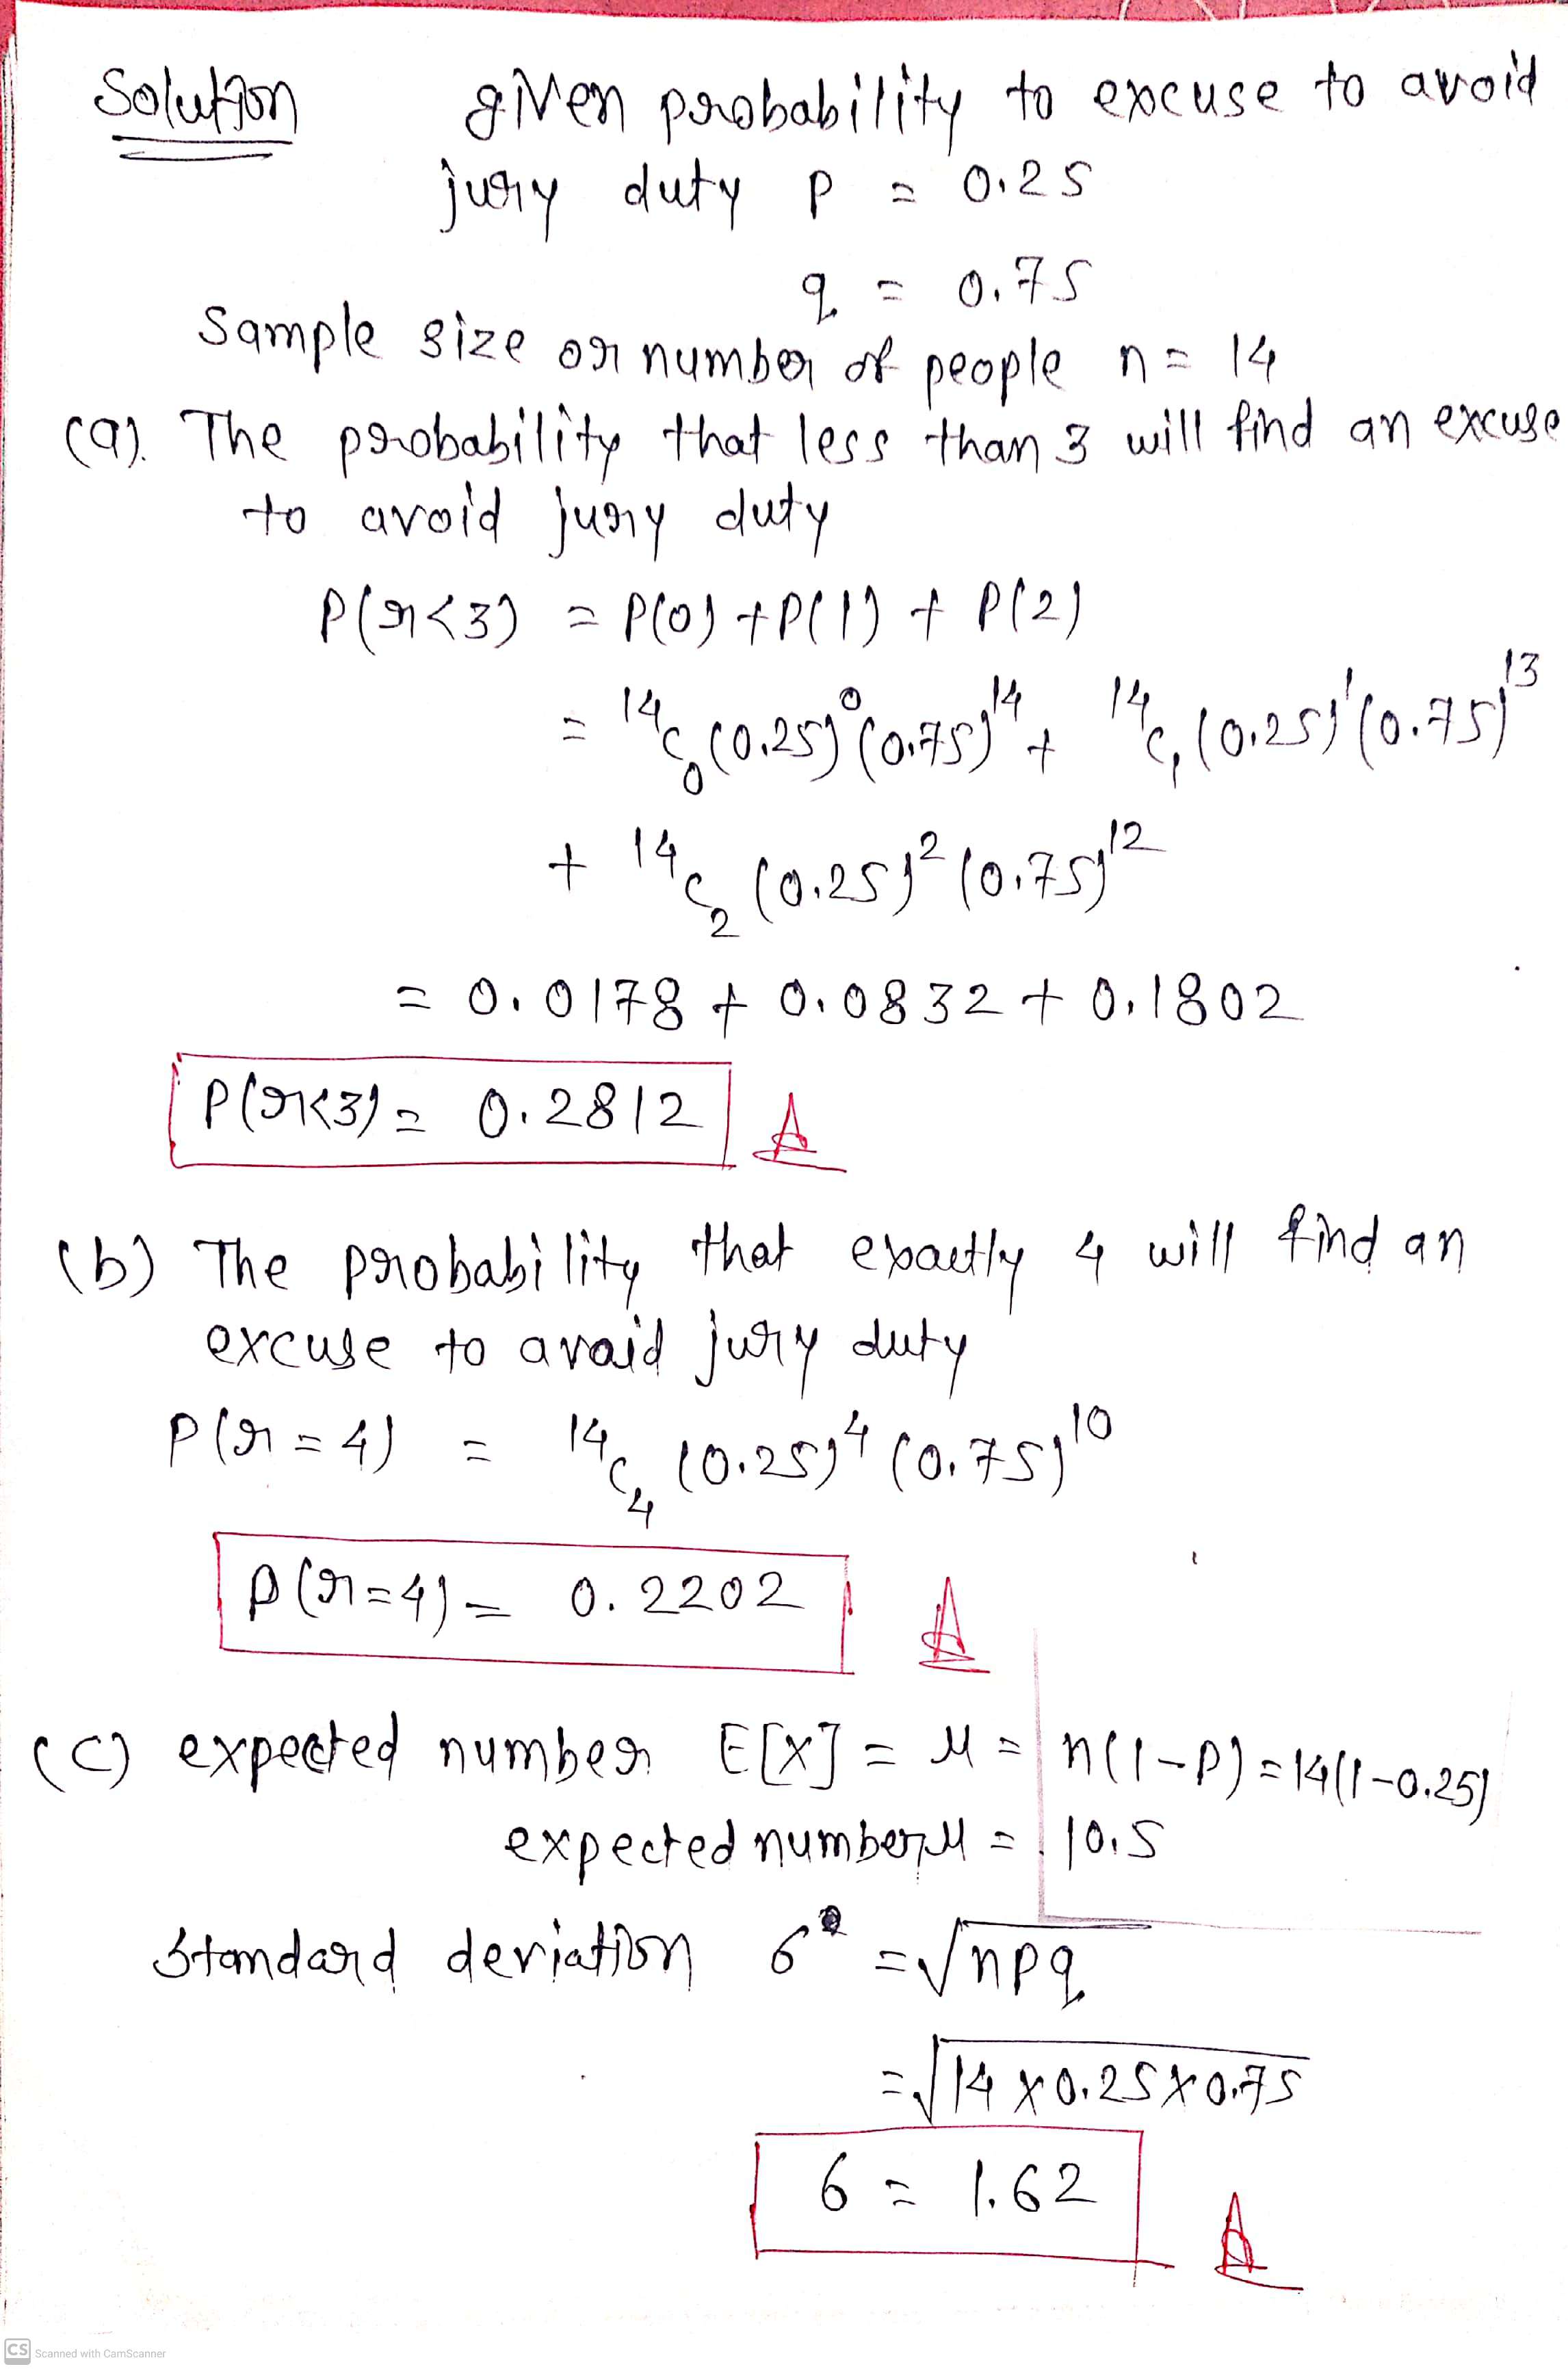 Solution given probability to excuse to avoid
jury duty p = 0.25
q = 0.75
Sample size or number of people n = 14
(a). The probability that less than 3 will find an excuse
to avoid jury duty
P(r<3) = P(0) + P(1) + P(2)
= ¹⁴C₀ (0.25)⁰ (0.75)¹⁴ + ¹⁴C₁ (0.25)¹ (0.75)¹³
+ ¹⁴C₂ (0.25)² (0.75)¹²
= 0.0178 + 0.0832 + 0.1802
P(r<3) = 0.2812 A
(b) The probability that exactly 4 will find an
excuse to avoid jury duty
P(r=4) = ¹⁴C₄ (0.25)⁴ (0.75)¹⁰
P(r=4) = 0.2202 A
(C) expected number E[X] = μ = n(1-P) = 14(1-0.25)
expected number μ = 10.5
Standard deviation σ = √npq
= √14 × 0.25 × 0.75
σ = 1.62 A
CS Scanned with CamScanner